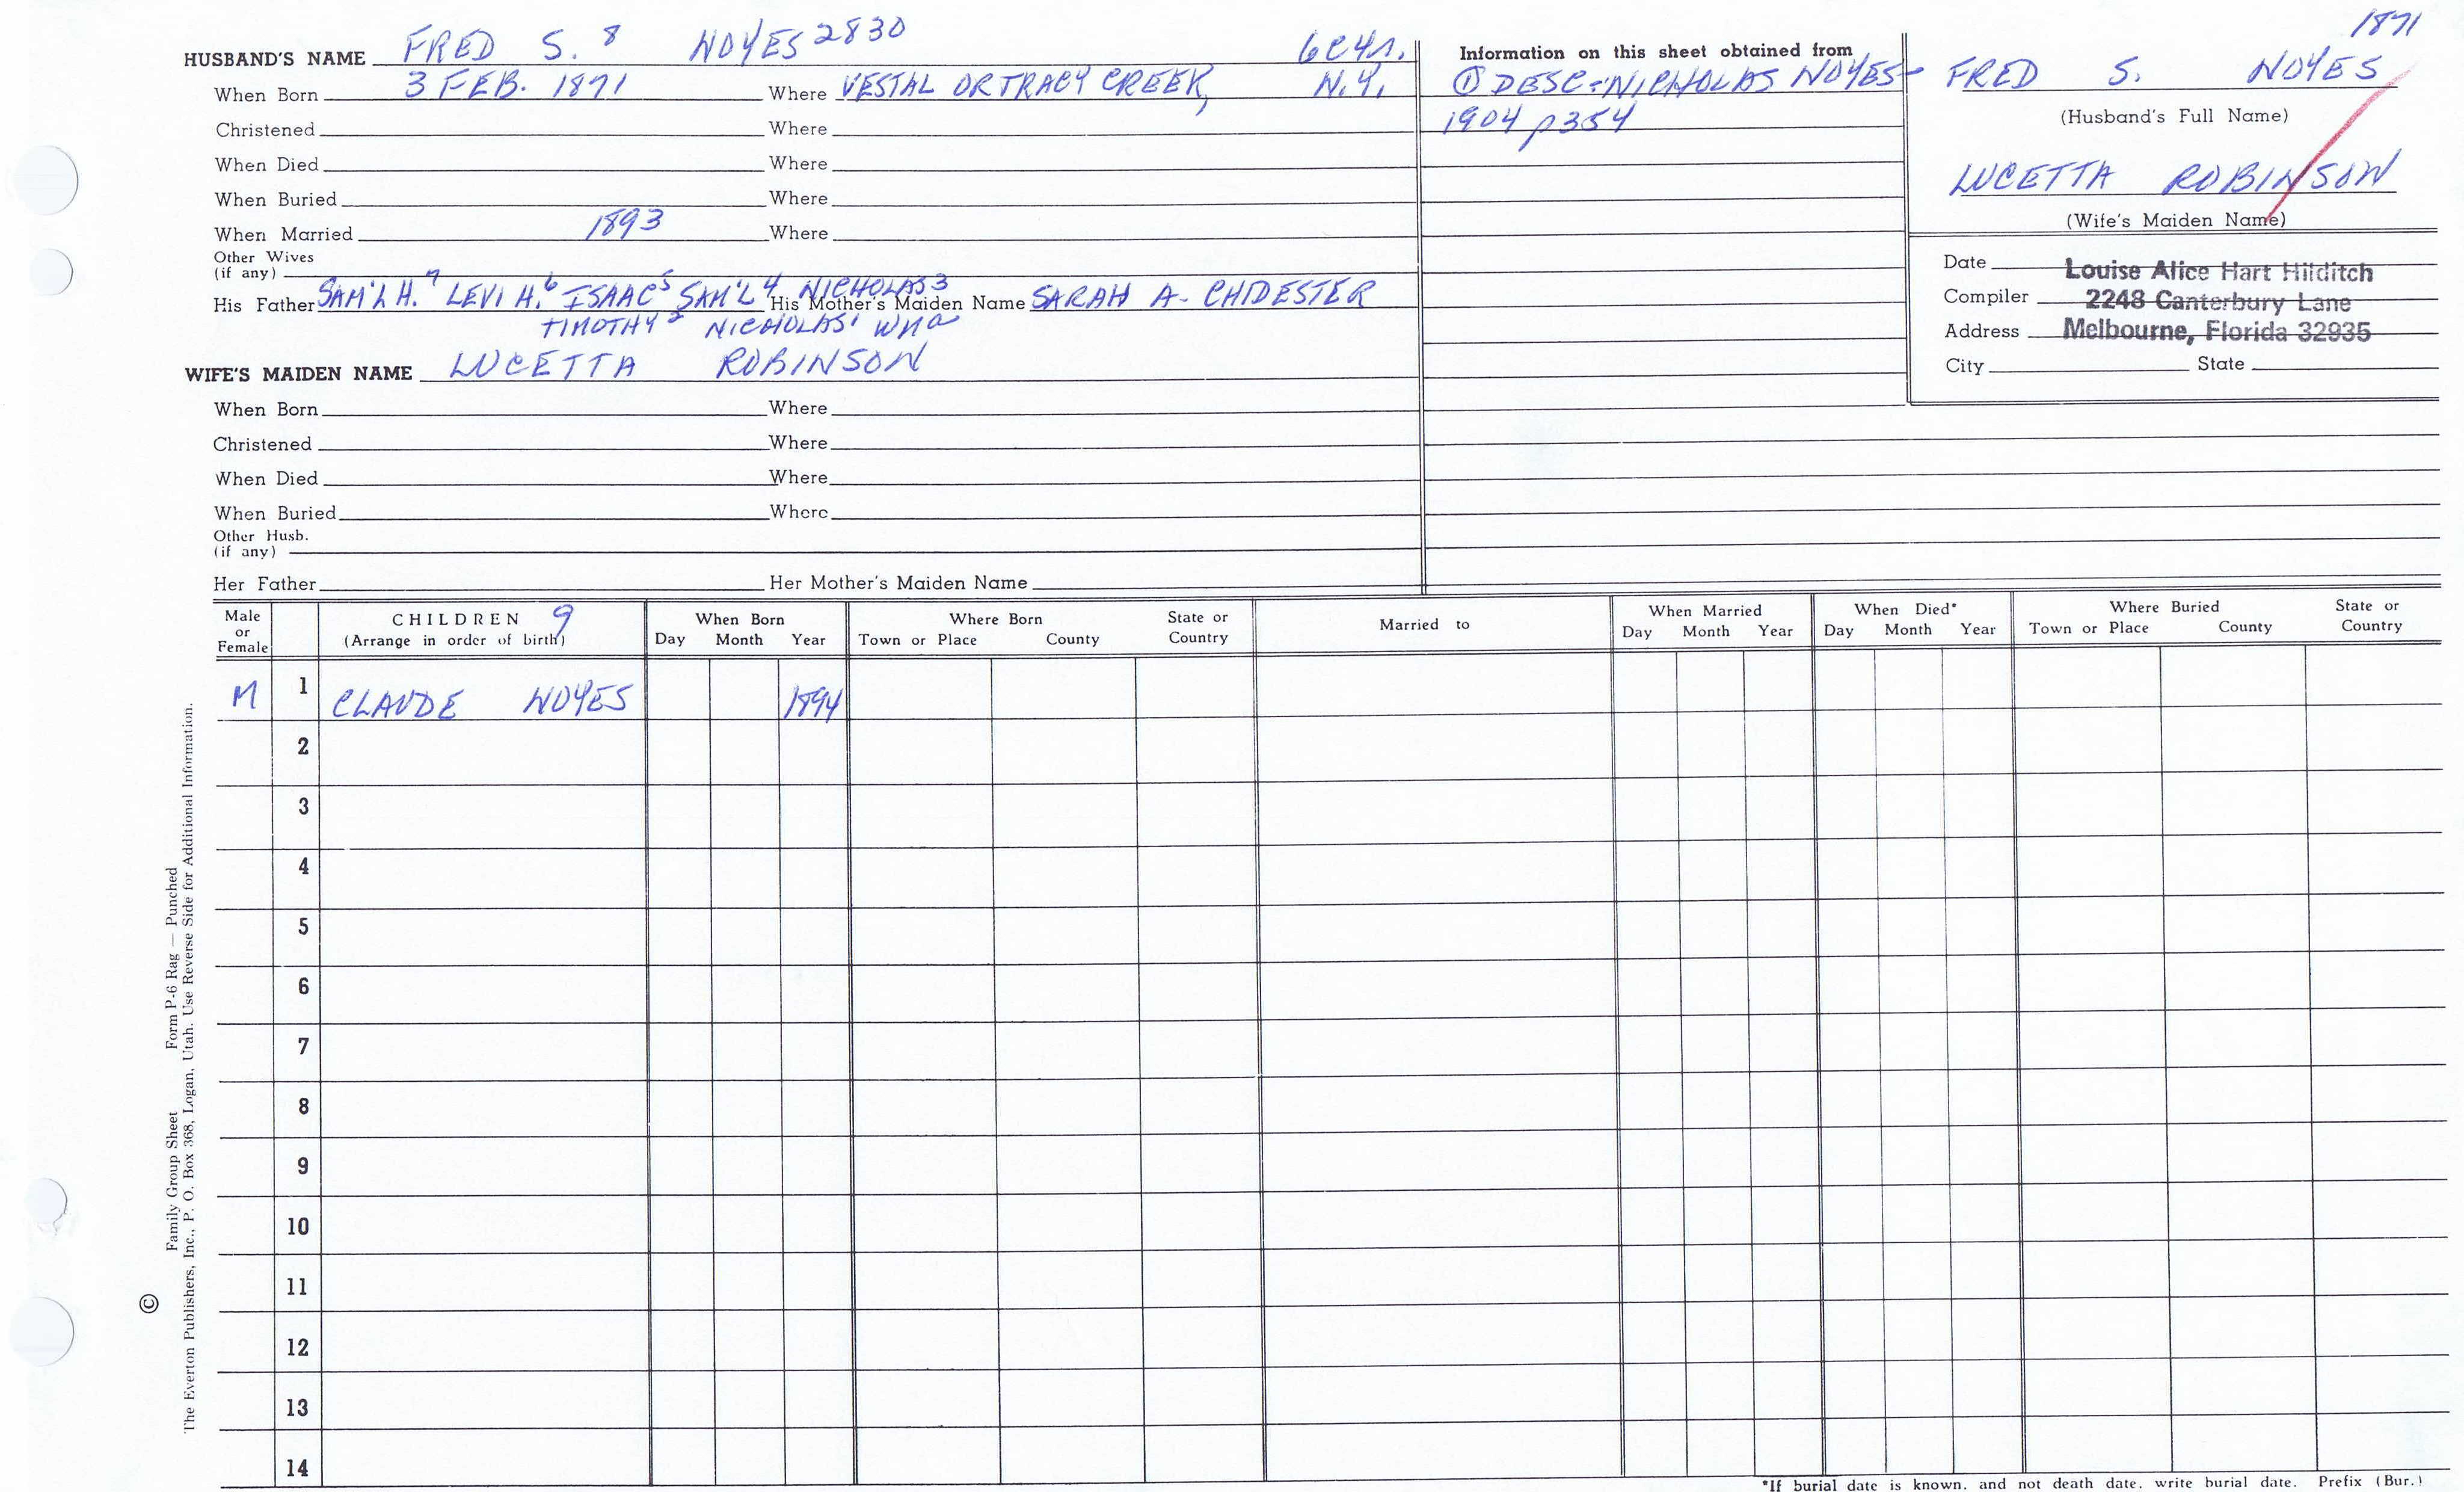 1871
HUSBAND'S NAME FRED S. 8 NOYES 2830 6C4R.
When Born 3 FEB. 1871 Where VESTAL OR TRACY CREEK, N.Y.
Christened Where
When Died Where
When Buried Where
When Married 1893 Where
Other Wives
(if any)
His Father SAM'L H.7 LEVI H.6 ISAAC5 SAM'L4 NICHOLAS3 His Mother's Maiden Name SARAH A. CHIDESTER
TIMOTHY2 NICHOLAS1 Wma
WIFE'S MAIDEN NAME LUCETTA ROBINSON
When Born Where
Christened Where
When Died Where
When Buried Where
Other Husb.
(if any)
Her Father Her Mother's Maiden Name
Information on this sheet obtained from
① DESC-NICHOLAS NOYES-
1904 p354
FRED S. NOYES
(Husband's Full Name)
LUCETTA ROBINSON
(Wife's Maiden Name)
Date Louise Alice Hart Hilditch
Compiler 2248 Canterbury Lane
Address Melbourne, Florida 32935
City State
Male or Female CHILDREN 9 (Arrange in order of birth) When Born Day Month Year Where Born Town or Place County State or Country Married to When Married Day Month Year When Died* Day Month Year Where Buried Town or Place County State or Country
M 1 CLAUDE NOYES 1894
2
3
4
5
6
7
8
9
10
11
12
13
14
*If burial date is known, and not death date, write burial date. Prefix (Bur.)
Family Group Sheet Form P-6 Rag — Punched
© The Everton Publishers, Inc., P. O. Box 368, Logan, Utah. Use Reverse Side for Additional Information.